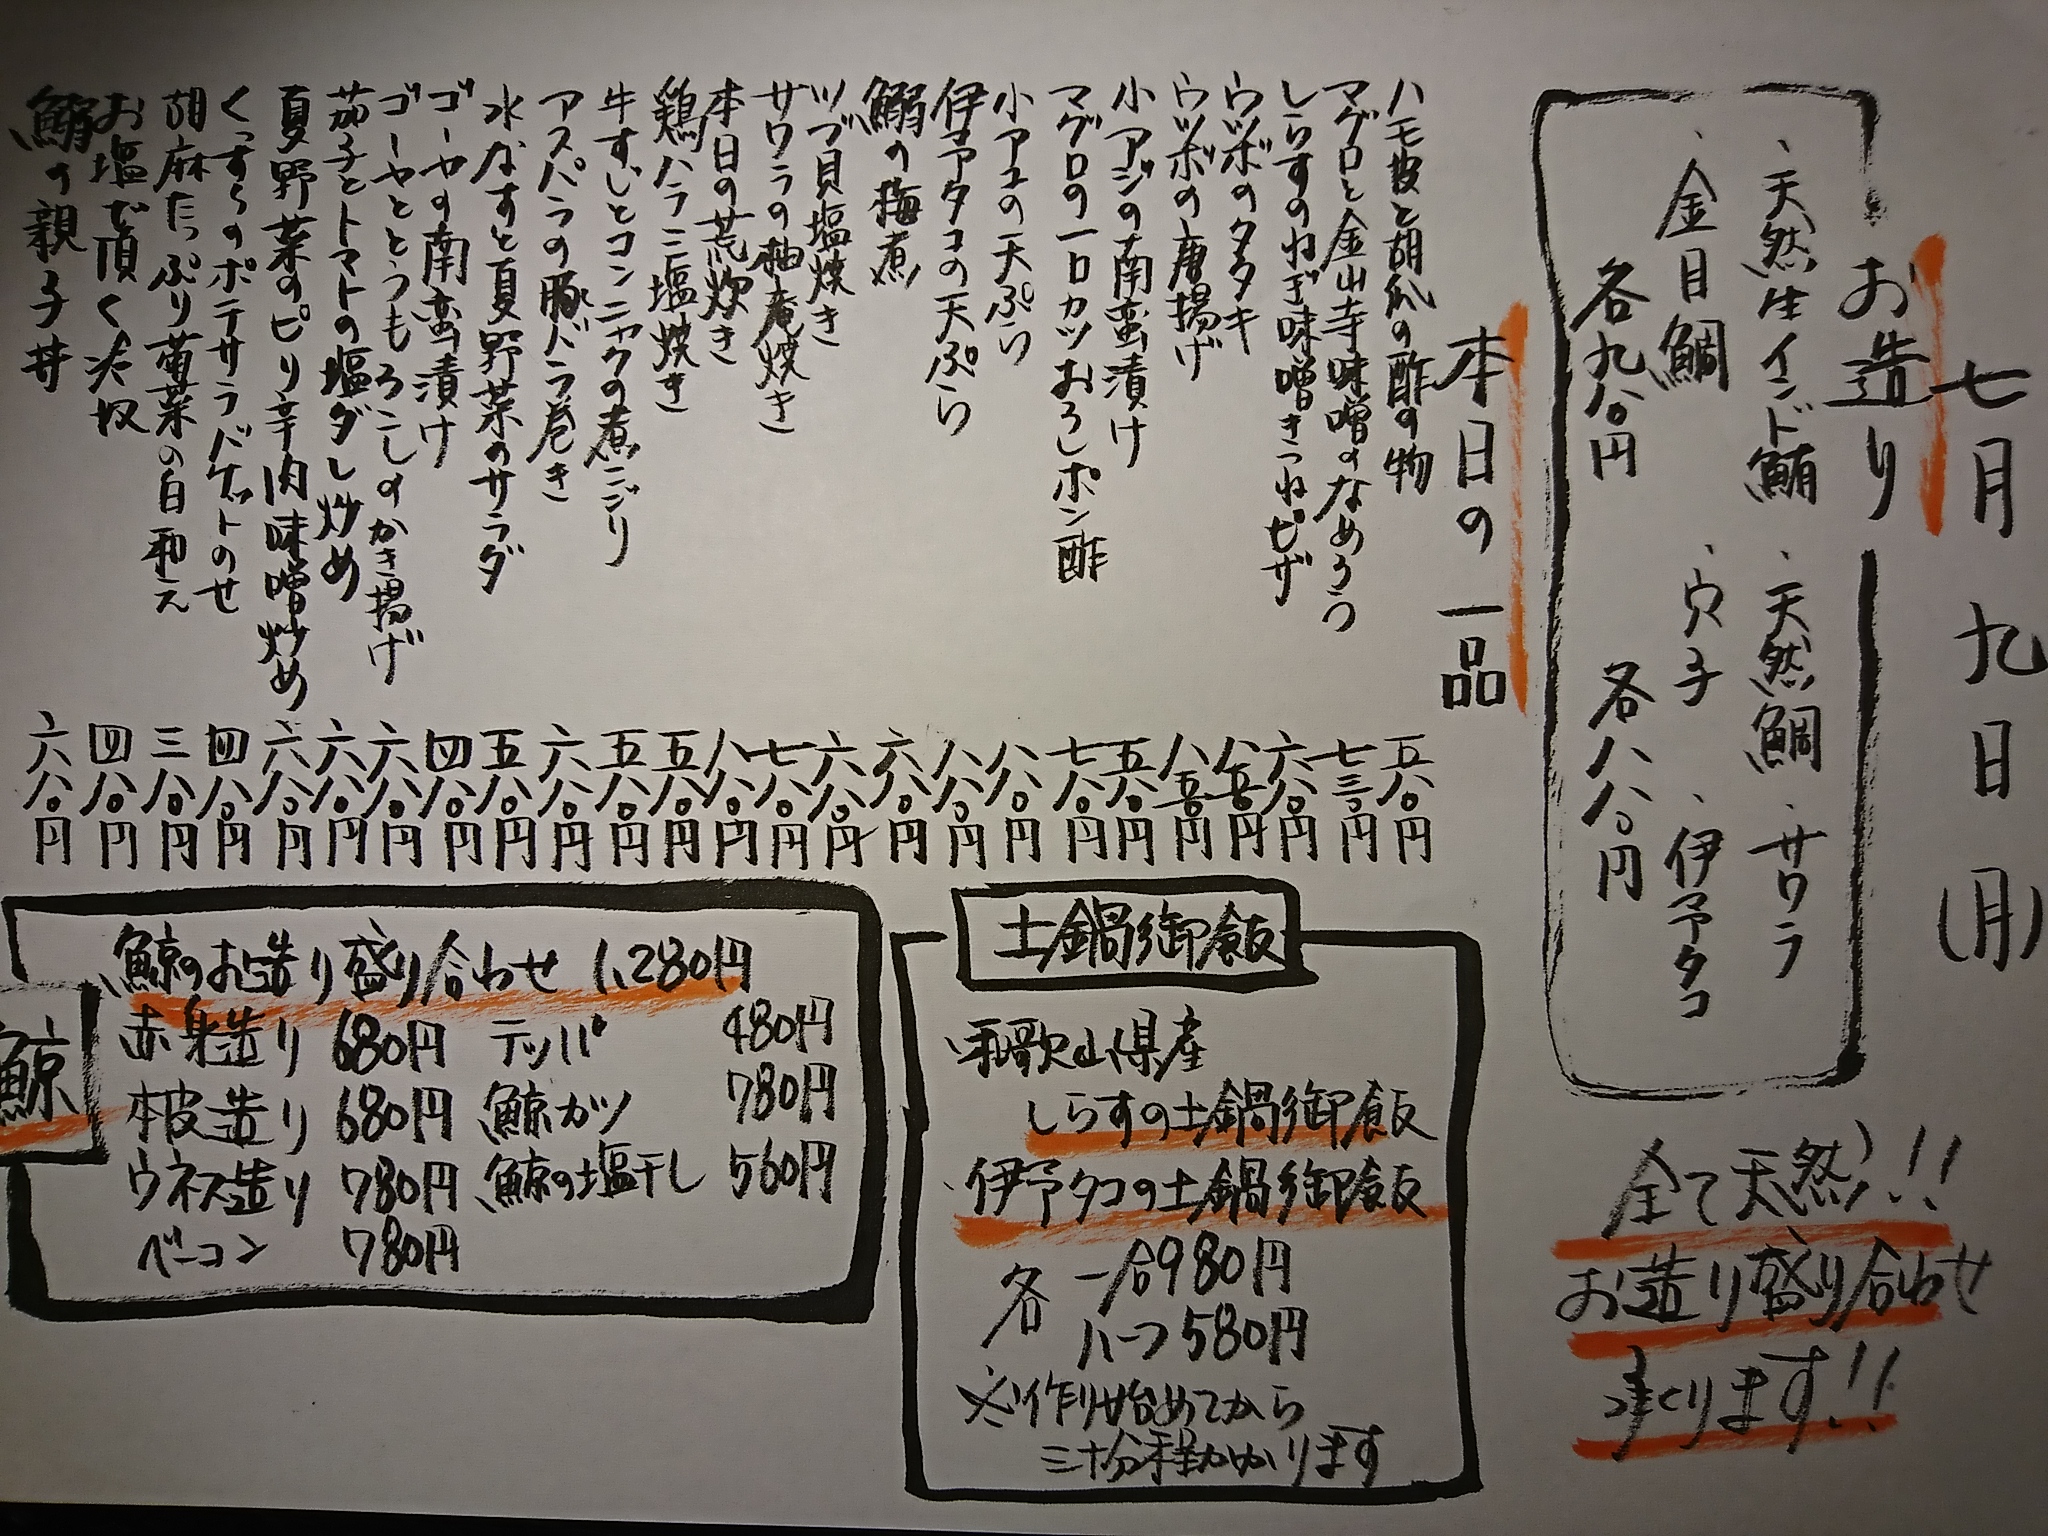 七月九日(月)
お造り
・天然生インド鮪 ・天然鯛 ・サワラ
・金目鯛 ・穴子 ・伊予タコ
各九八〇円 各八八〇円
全て天然!!
お造り盛り合わせ
承ります!!
本日の一品
ハモ皮と胡瓜の酢の物 五八〇円
マグロと金山寺味噌のなめろう 七三〇円
しらすのねぎ味噌きつねピザ 六八〇円
ウツボのタタキ 八五〇円
ウツボの唐揚げ 八五〇円
小アジの南蛮漬け 五八〇円
マグロの一口カツおろしポン酢 七八〇円
小アユの天ぷら 八八〇円
伊予タコの天ぷら 八八〇円
鰯の梅煮 六八〇円
ツブ貝塩焼き 六八〇円
サワラの柚庵焼き 七八〇円
本日の荒炊き 八八〇円
鶏ハラミ塩焼き 五八〇円
牛すじとコンニャクの煮こごり 五八〇円
アスパラの豚バラ巻き 六八〇円
水なすと夏野菜のサラダ 五八〇円
ゴーヤの南蛮漬け 四八〇円
ゴーヤととうもろこしのかき揚げ 六八〇円
茄子とトマトの塩ダレ炒め 六八〇円
夏野菜のピリ辛肉味噌炒め 六八〇円
くっすらのポテサラバケットのせ 四八〇円
胡麻たっぷり菊菜の白和え 三八〇円
お塩で頂く冷奴 四八〇円
鰯の親子丼 六八〇円
土鍋御飯
・和歌山県産
しらすの土鍋御飯
・伊予タコの土鍋御飯
各 一合980円
ハーフ580円
※作り始めてから
三十分程かかります
鯨
鯨のお造り盛り合わせ 1,280円
赤身造り 680円 テッパ 480円
本皮造り 680円 鯨カツ 780円
ウネス造り 780円 鯨の塩干し 560円
ベーコン 780円